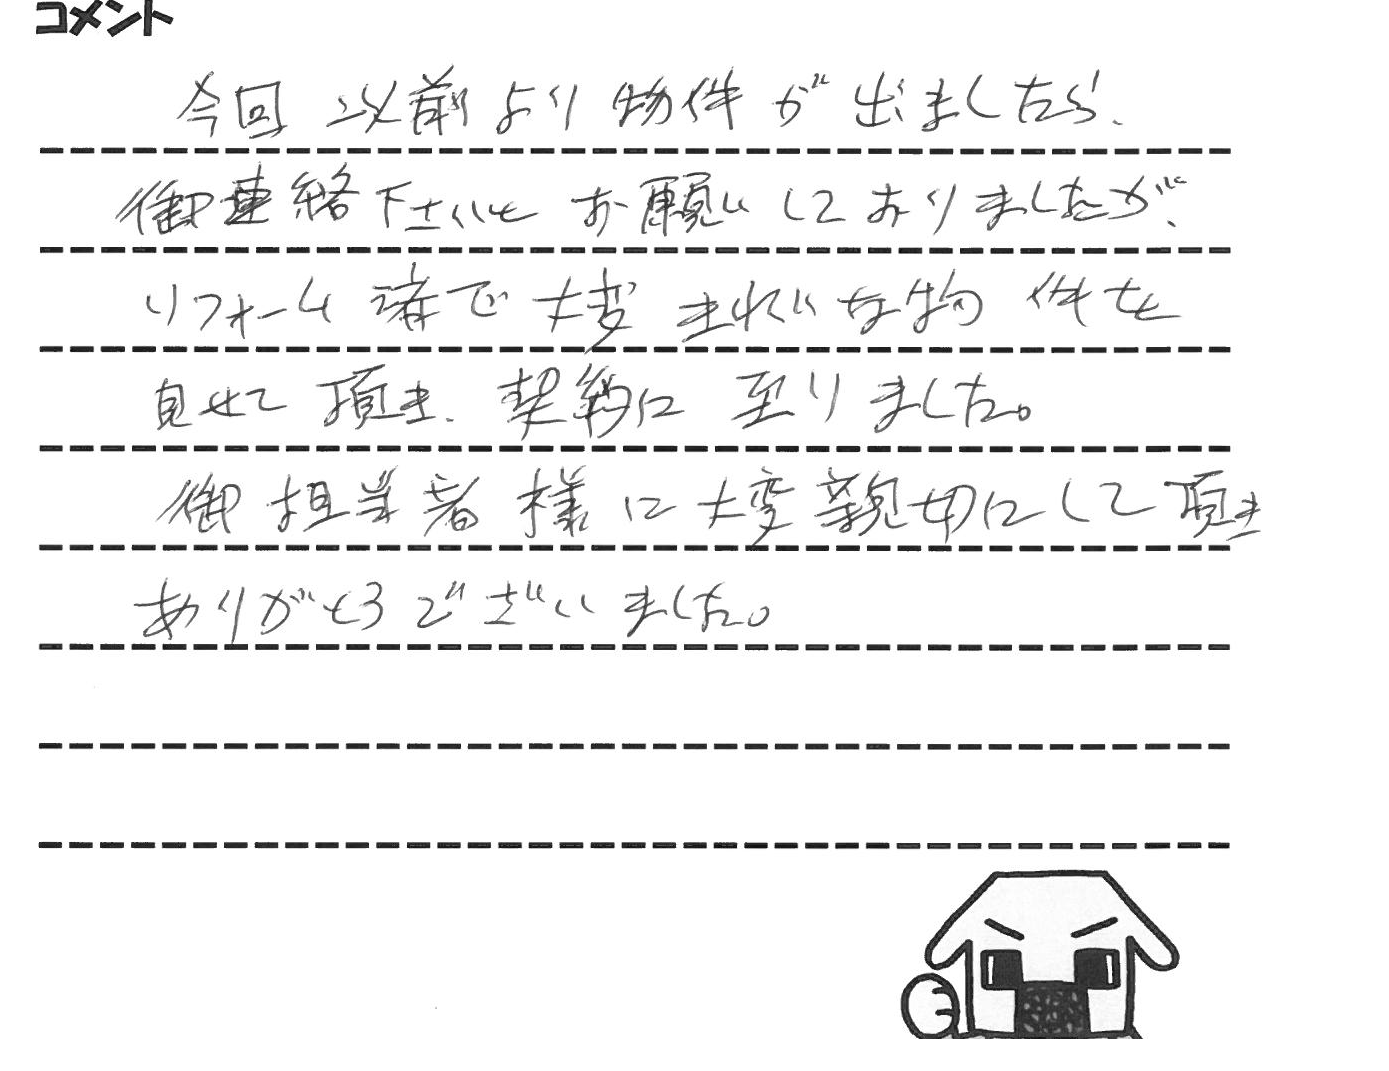 コメント
今回 以前より物件が出ましたら、
御連絡下さいとお願いしておりましたが、
リフォーム済で大変きれいな物件を
見せて頂き、契約に至りました。
御担当者様に大変親切にして頂き
ありがとうございました。